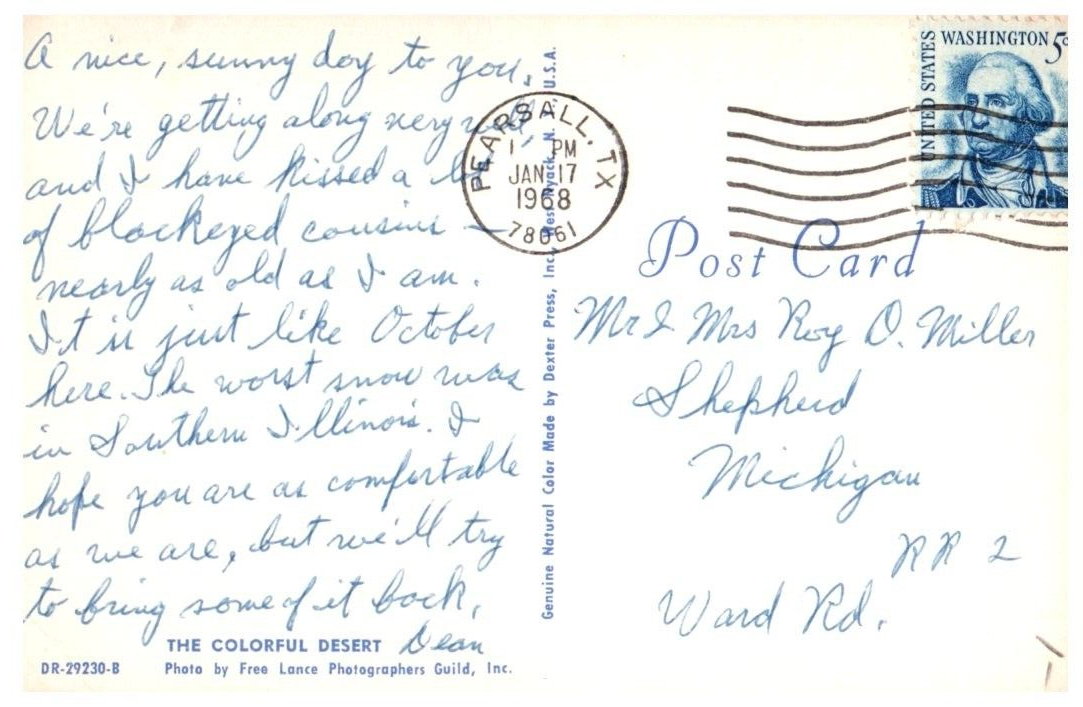 A nice, sunny day to you.
We're getting along very well,
and I have kissed a
of blackeyed cousins —
nearly as old as I am.
It is just like October
here. The worst snow was
in Southern Illinois. I
hope you are as comfortable
as we are, but we'll try
to bring some of it back,
Dean
THE COLORFUL DESERT
DR-29230-B
Photo by Free Lance Photographers Guild, Inc.
Genuine Natural Color Made by Dexter Press, Inc., West Nyack, N. Y., U.S.A.
PEARSALL, TX
1 PM
JAN 17
1968
78061
UNITED STATES
WASHINGTON 5c
Post Card
Mr & Mrs Roy O. Miller
Shepherd
Michigan
RR 2
Ward Rd.